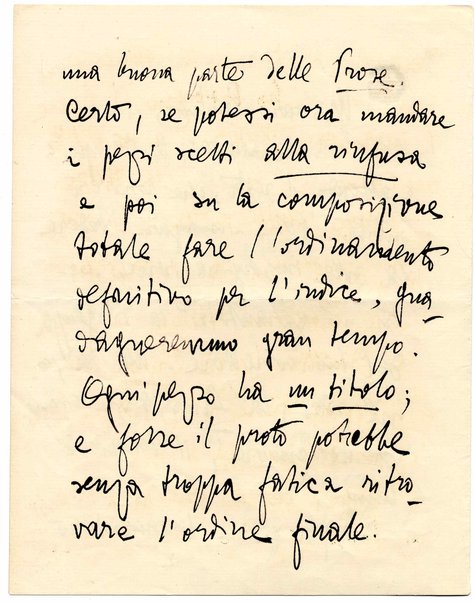 una buona parte delle Prose.
Certo, se potessi ora mandare
i pezzi scelti alla rinfusa
e poi su la composizione
totale fare l'ordinamento
definitivo per l'indice, gua-
dagneremmo gran tempo.
Ogni pezzo ha un titolo;
e forse il proto potrebbe
senza troppa fatica ritro-
vare l'ordine finale.